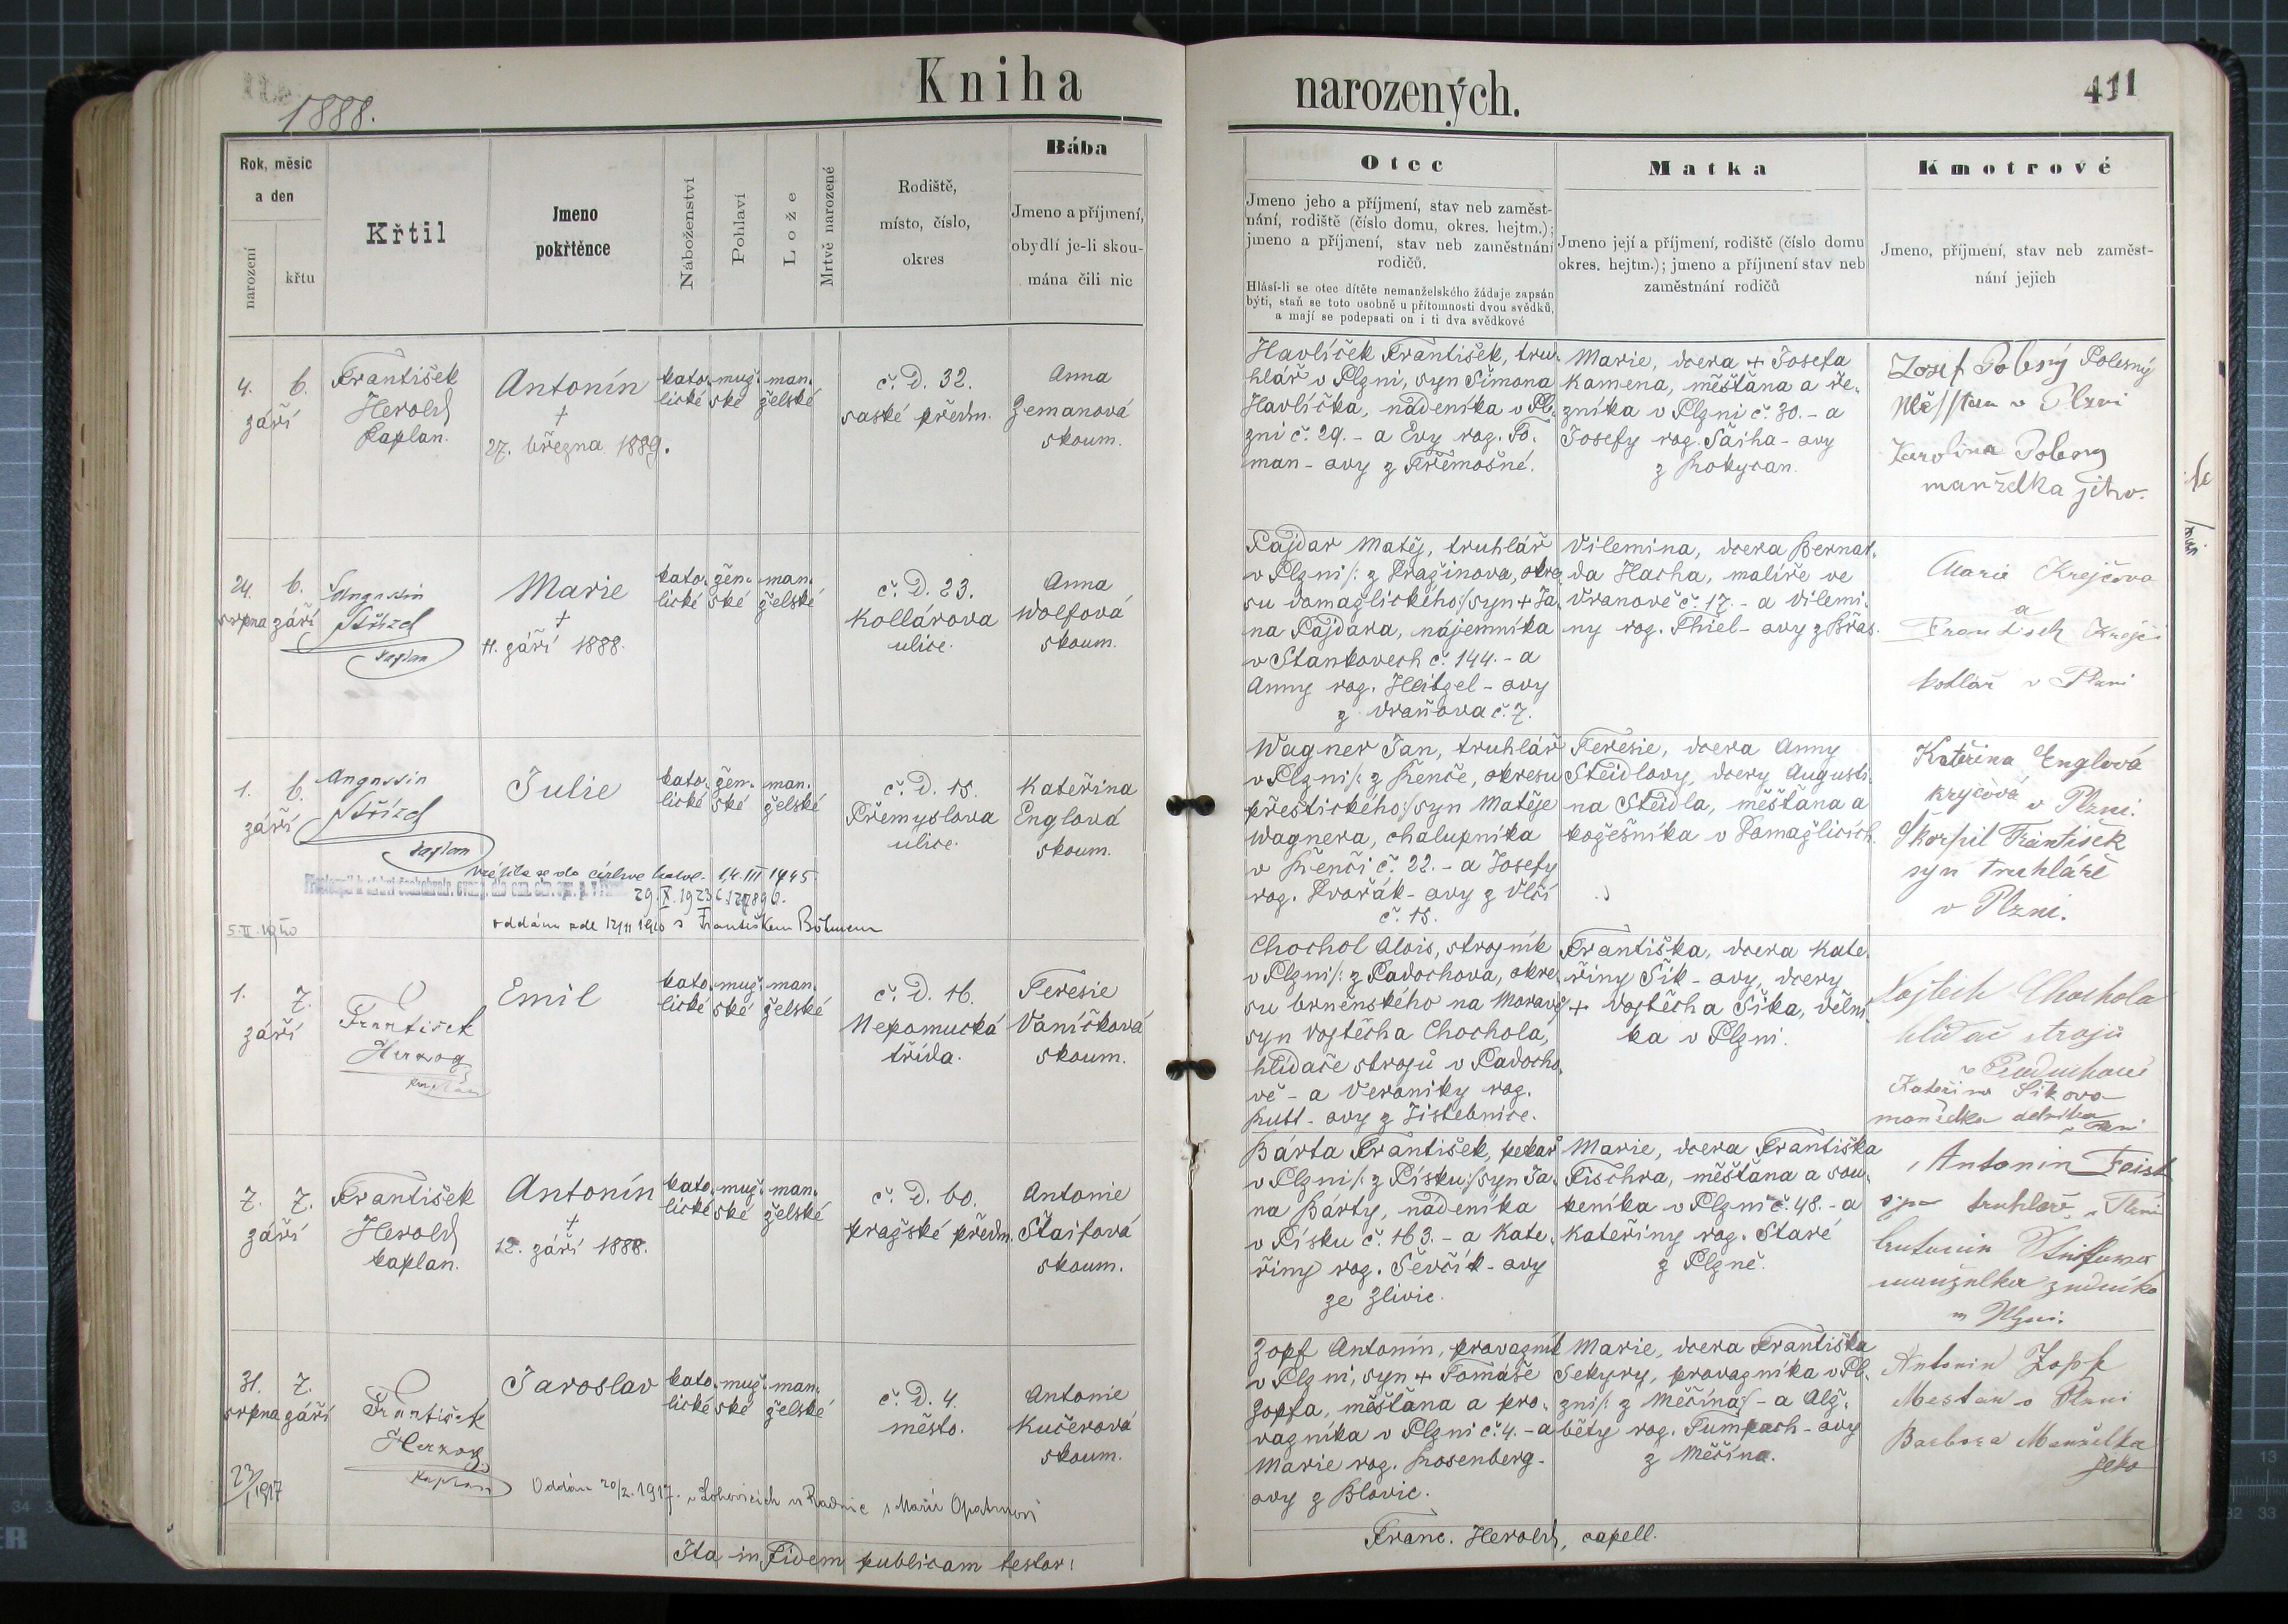 Kniha
narozených.
411
1888.
Rok, měsíc
a den
narození
křtu
Křtil
Jmeno
pokřtěnce
Náboženství
Pohlaví
Lože
Mrtvě narozené
Rodiště,
místo, číslo,
okres
Bába
Jmeno a příjmení,
obydlí je-li skou-
mána čili nic
Otec
Jmeno jeho a příjmení, stav neb zaměst-
nání, rodiště (číslo domu, okres. hejtm.);
jmeno a příjmení, stav neb zaměstnání
rodičů.
Hlásí-li se otec dítěte nemanželského žádaje zapsán
býti, staň se toto osobně u přítomnosti dvou svědků,
a mají se podepsati on i ti dva svědkové
Matka
Jmeno její a příjmení, rodiště (číslo domu
okres. hejtm.); jmeno a příjmení stav neb
zaměstnání rodičů
Kmotrové
Jmeno, příjmení, stav neb zaměst-
nání jejich
4. 6.
září
František
Herold
kaplan.
Antonín
†
27. března 1889.
kato-
lické
muž-
ské
man-
želské
č. D. 32.
saské předm.
Anna
Zemanová
skoum.
Havlíček František, tru-
hlář v Plzni, syn Šimona
Havlíčka, nádeníka v Pl-
zni č. 29. - a Evy roz. To-
man - ovy z Třemošné.
Marie, dcera + Josefa
Kamena, měšťana a ře-
zníka v Plzni č. 30. - a
Josefy roz. Šaiha - ovy
z Rokycan.
Josef Polesný Polesný
v Plzni
Karolina Polesny
manželka jeho.
24. 6.
srpna září
Střízd
kaplan
Marie
†
11. září 1888.
kato-
lické
žen-
ské
man-
želské
č. D. 23.
Kollárova
ulice.
Anna
Wolfová
skoum.
Pajdar Matěj, truhlář
v Plzni /: z Pražinova, okre-
su domažlického :/ syn + Ja-
na Pajdara, nájemníka
v Stankovech č. 144. - a
Anny roz. Heitzel - ovy
z Vraňova č. 7.
Vilemina, dcera Bernar-
da Hacha, malíře ve
Vranově č. 17. - a Vilemi-
ny roz. Thiel - ovy z Břas.
Marie Krejčova
a
Frantisch Krejči
kotlář v Plzni
1. 6.
září
Střízd
kaplan
Julie
kato-
lické
žen-
ské
man-
želské
č. D. 15.
Přemyslova
ulice.
Kateřina
Englová
skoum.
do církve katol. 14. III. 1945
29. X. 1923
oddána zde 1920 s Františkem Böhmem
Wagner Jan, truhlář
v Plzni /: z Řenče, okresu
přeštického :/ syn Matěje
Wagnera, chalupníka
v Řenči č. 22. - a Josefy
roz. Dvořák - ovy z Vlčí
č. 15.
Teresie, dcera Anny
Steidlovy, dcery Augusti-
na Steidla, měšťana a
kožešníka v Domažlicích.
Kateřina Englová
krejčová v Plzni.
Škorpil František
syn truhláře
v Plzni.
1. 7.
září
František
Herzog
kaplan
Emil
kato-
lické
muž-
ské
man-
želské
č. D. 16.
Nepomucká
třída.
Teresie
Vaníčková
skoum.
Chochol Alois, strojník
v Plzni /: z Padochova, okre-
su brněnského na Moravě
syn Vojtěcha Chochola,
hlídače strojů v Padocho-
vě - a Veroniky roz.
Rutt - ovy z Jistebnice.
Františka, dcera Kate-
řiny Šik - ovy, dcery
+ Vojtěcha Šika, dělní-
ka v Plzni.
Vojtěch Chochola
hlídač strojů
Kateřina Šikova
manželka delníka
7. 7.
září
František
Herold
kaplan.
Antonín
†
12. září 1888.
kato-
lické
muž-
ské
man-
želské
č. D. 60.
pražské předm.
Antonie
Štaifová
skoum.
Bárta František, pekař
v Plzni /: z Písku :/ syn Ja-
na Bárty, nádeníka
v Písku č. 163. - a Kate-
řiny roz. Ševčík - ovy
ze Zlivic.
Marie, dcera Františka
Fischra, měšťana a sou-
keníka v Plzni č. 48. - a
Kateřiny roz. Staré
z Plzně.
Antonin Faist
syn truhlař v Plzni
v Plzni.
31. 7.
srpna září
František
Herzog
kaplan
Jaroslav
kato-
lické
muž-
ské
man-
želské
č. D. 4.
město.
Antonie
Kučerová
skoum.
1917
Oddán 20/2. 1917. v Lohovicích u Radnic s Marií Opatrnou
Zopf Antonín, provazník
v Plzni, syn + Tomáše
Zopfa, měšťana a pro-
vazníka v Plzni č. 4. - a
Marie roz. Rosenberg-
ovy z Blovic.
Marie, dcera Františka
Sekyry, provazníka v Pl-
zni /: z Měčína :/ - a Alž-
běty roz. Tumpach - ovy
z Měčína.
Antonín Zopf
Mestan v Plzni
Barbora Manželka
jeho
Ita in fidem publicam testor:
Franc. Herold, capell.